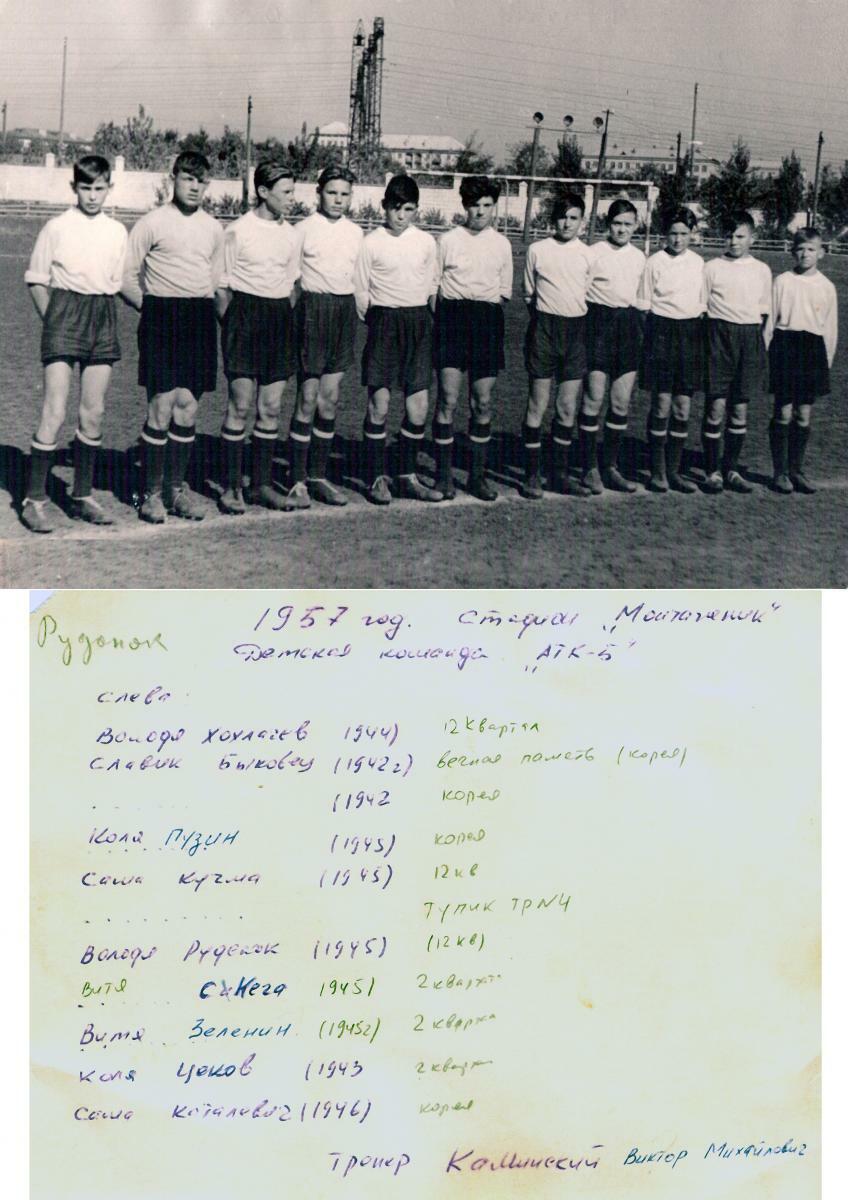 Рудонок
1957 год. Стадион „Монтажник"
Детская команда „АТК-5"
слева:
Володя Хохлачев 1944) 12 квартал
Славик Быковец (1942г) вечная память (корея)
. . . . . . (1942 корея
Коля Пузин (1945) корея
Саша Кучма (1945) 12 кв
. . . . . . . . . Тупик ТР№4
Володя Руденок (1945) (12 кв)
Витя Синега 1945) 2 квартал
Витя Зеленин (1945г) 2 квартал
Коля Цеков (1943 2 квартал
Саша Каталевич (1946) корея
Тренер Каминский Виктор Михайлович